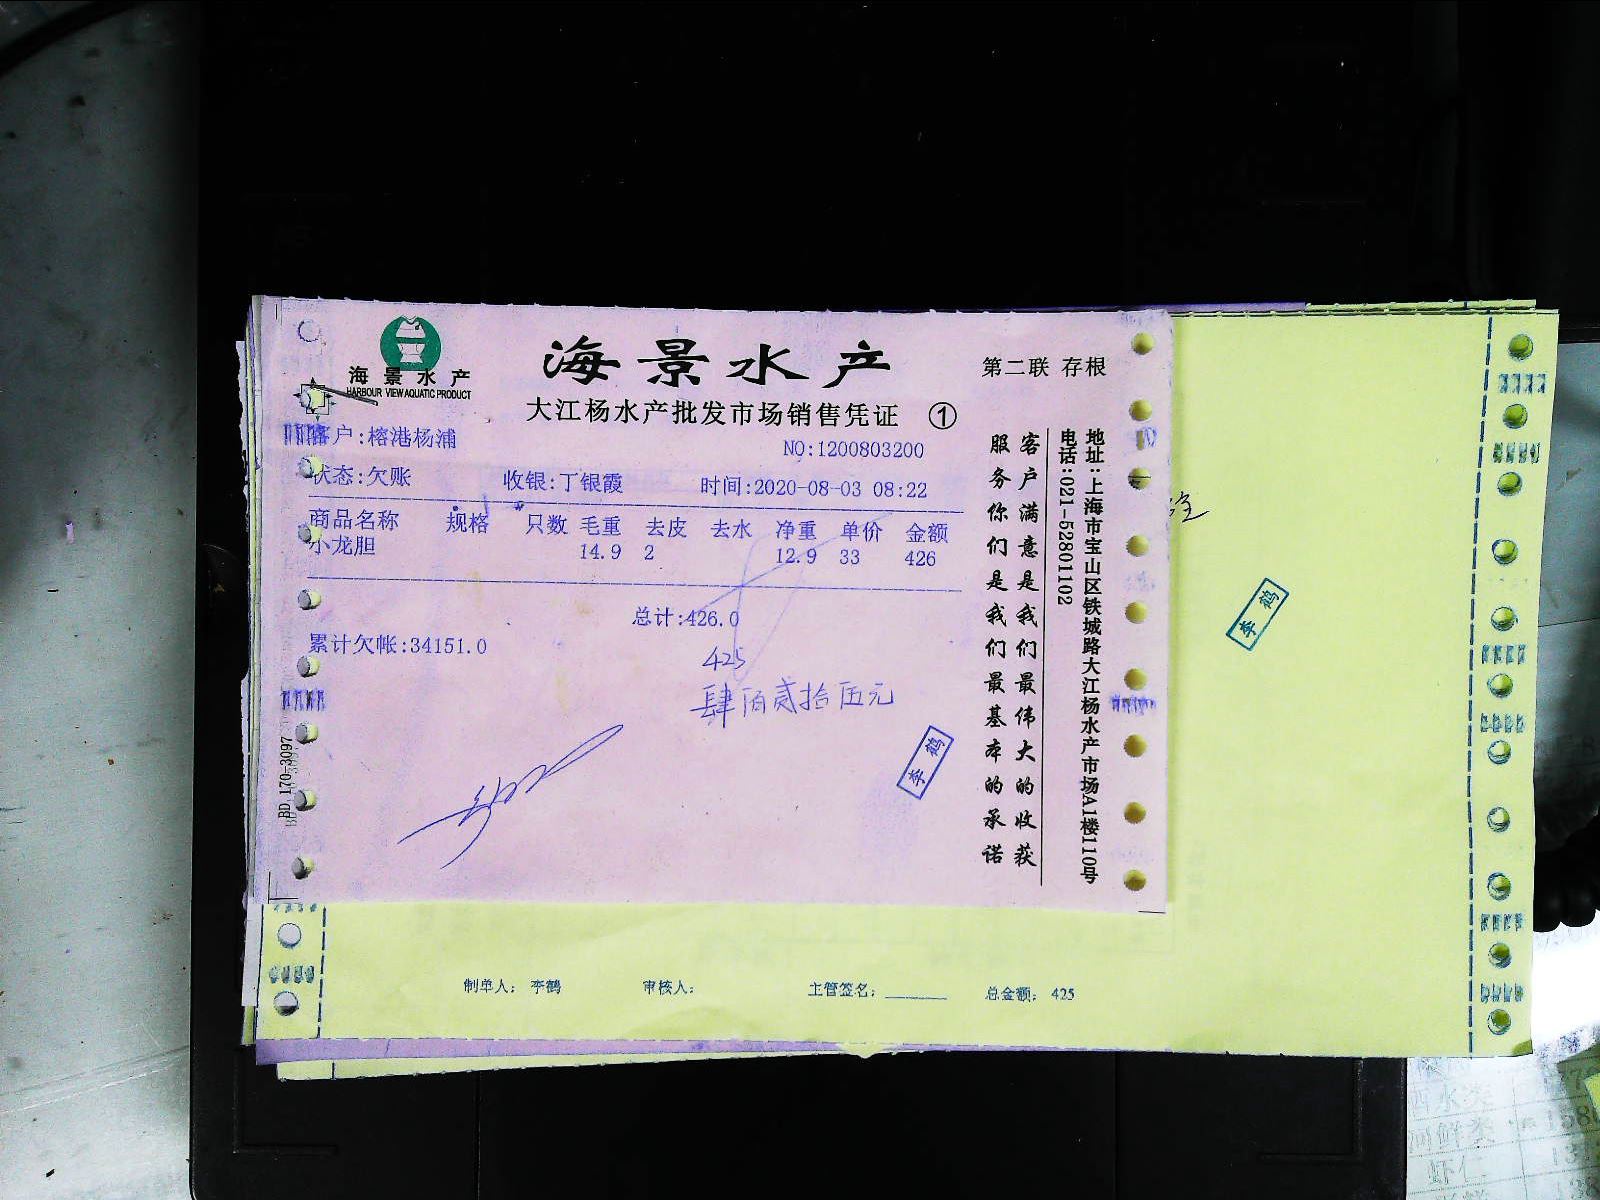 海景水产
HARBOUR VIEW AQUATIC PRODUCT
海景水产
第二联 存根
大江杨水产批发市场销售凭证 ①
客户:榕港杨浦
NO:1200803200
状态:欠账 收银:丁银霞 时间:2020-08-03 08:22
商品名称 规格 只数 毛重 去皮 去水 净重 单价 金额
小龙胆 14.9 2 12.9 33 426
总计:426.0
累计欠帐:34151.0
425
肆佰贰拾伍元
李鹤
客户满意是我们最伟大的收获
服务你们是我们最基本的承诺
地址:上海市宝山区铁城路大江杨水产市场A1楼110号
电话:021-52801102
BD 170-3097
李鹤
制单人: 李鹤 审核人: 主管签名: 总金额: 425
虾仁